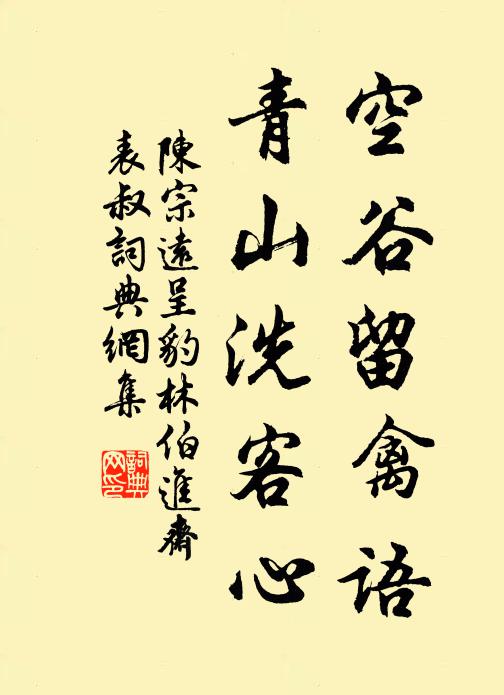 空谷留禽語
青山洗客心
陳宗遠呈豹林伯進齋
表叔詞典網集
詞典
网印